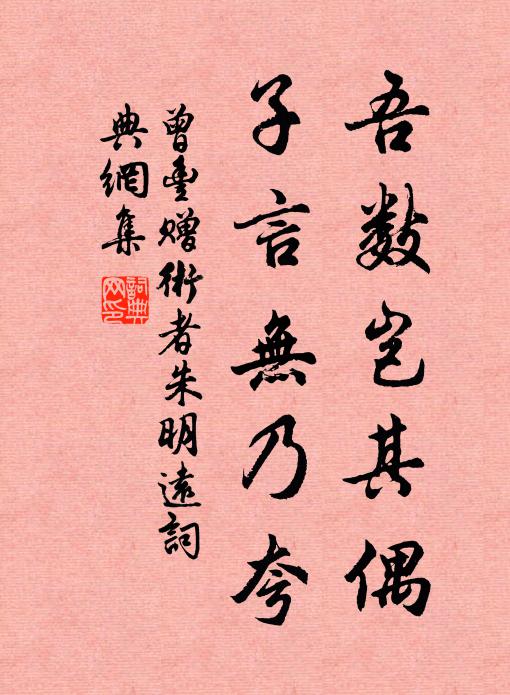 吾数岂其偶
子言無乃夸
曾豊赠術者朱明遠詞
典網集
詞典
网印